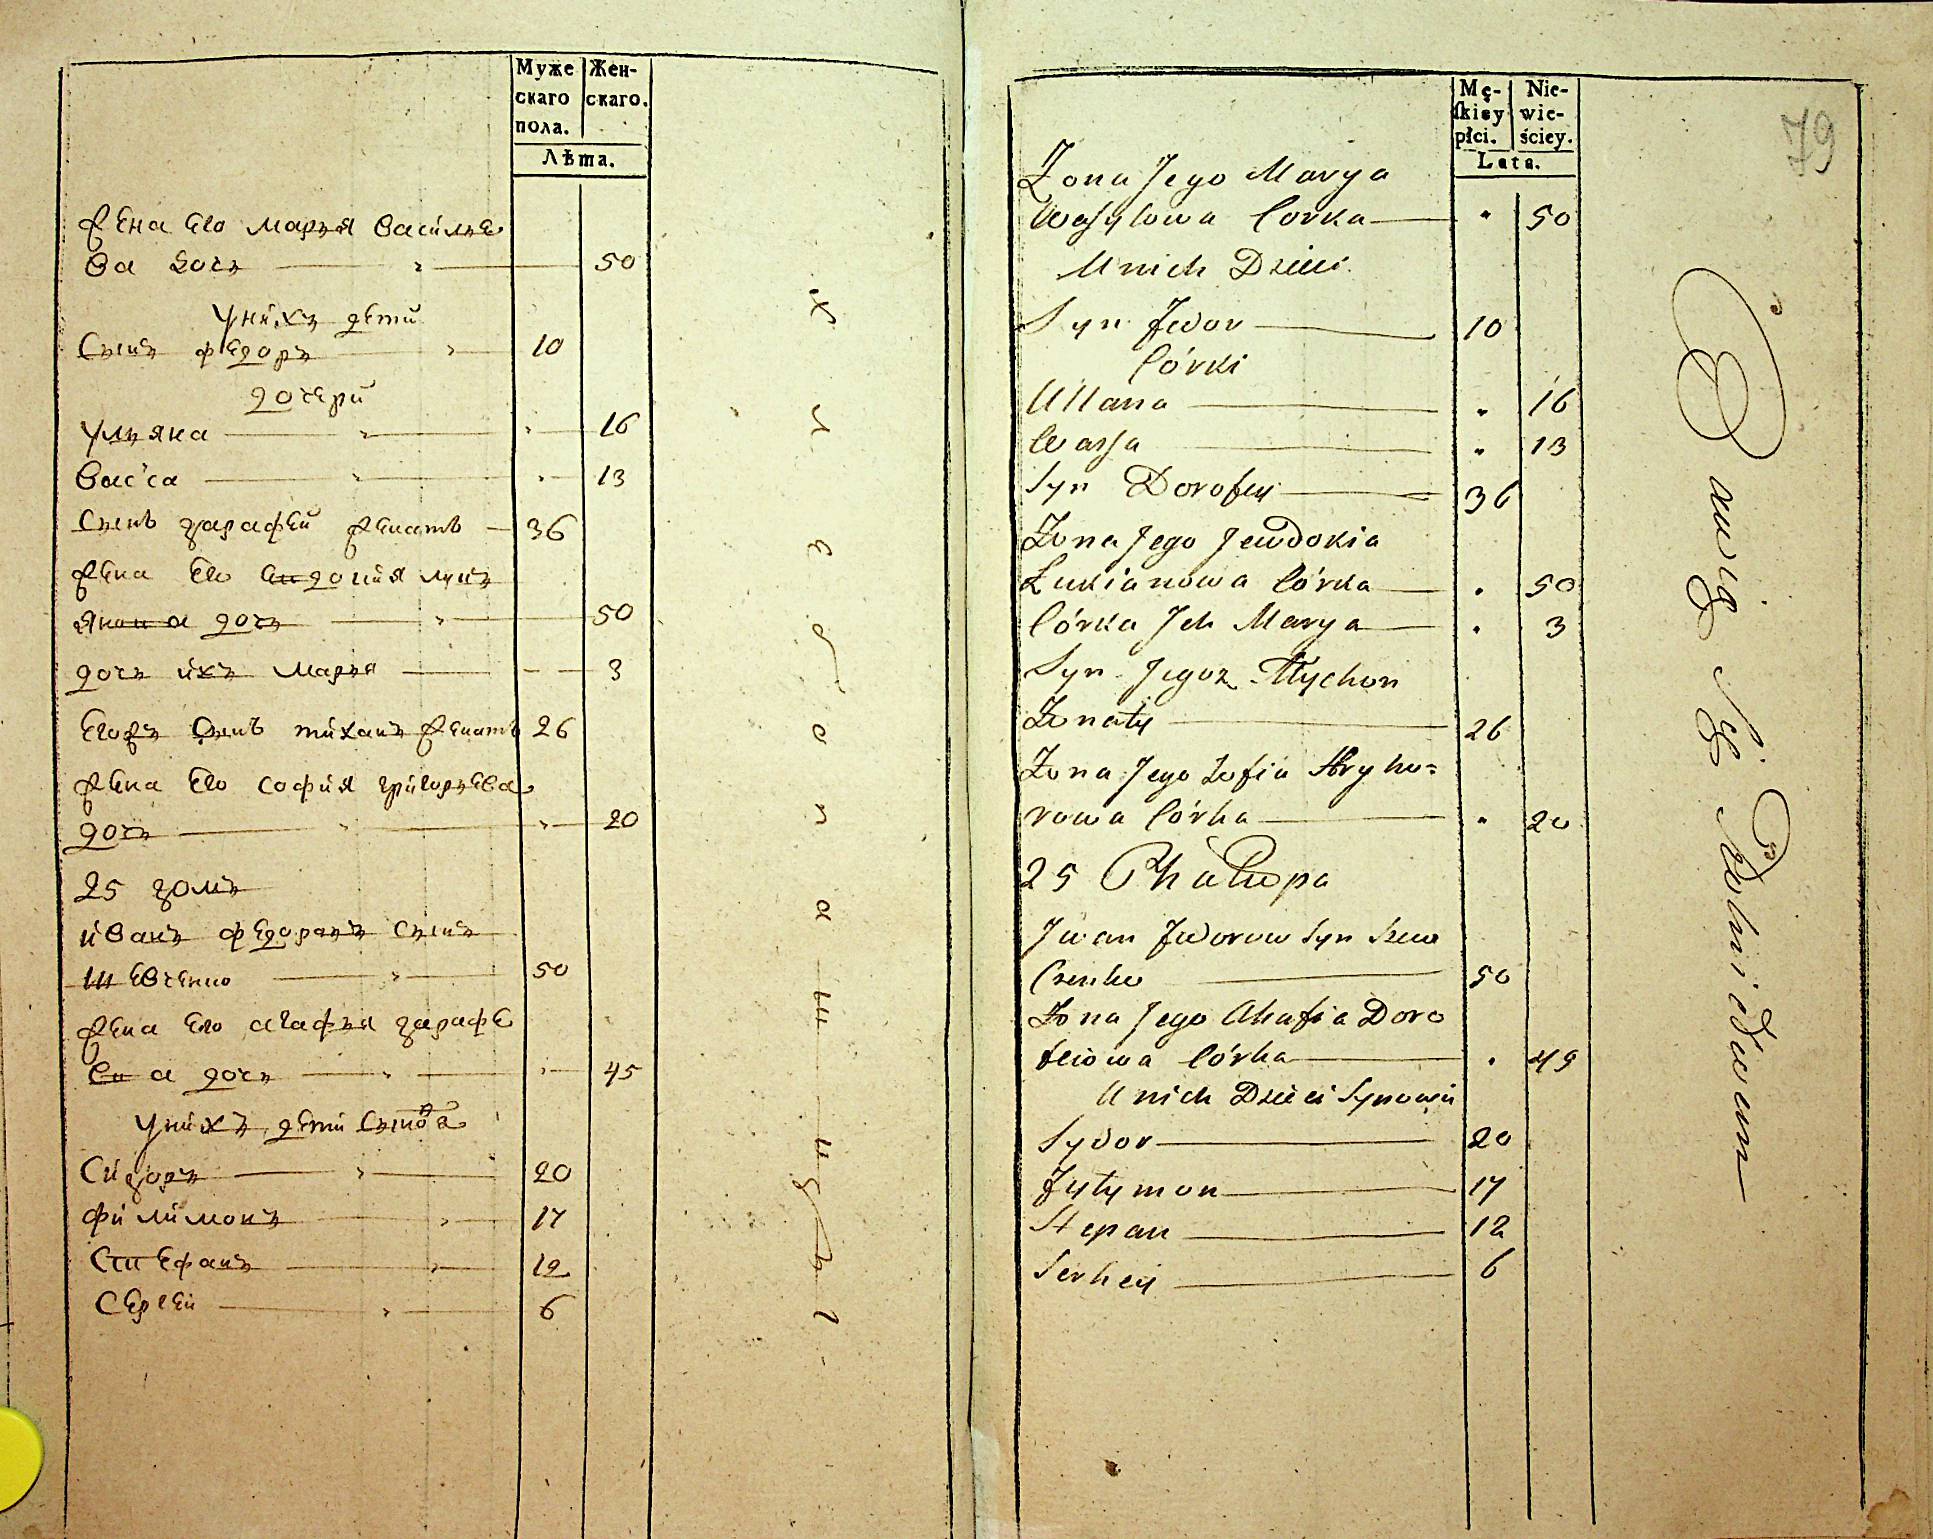 Муже
скаго
пола.
Жен-
скаго.
Лѣта.
жена его марья василье
ва дочь 50
у нихъ дети
Сынъ федоръ 10
дочери
ульяна 16
васса 13
Сынъ дарафей женатъ 36
жена его евдокия лукъ
янова дочь 50
дочь ихъ марья 3
Егоръ Сынъ тиханъ женатъ 26
жена его софия григорьева
дочь 20
25 домъ
иванъ федоравъ Сынъ
шевченко 50
жена его агафья дарафе
ева дочь 45
у нихъ дети Сынова
Сидоръ 20
филимонъ 17
Стефанъ 12
Сергей 6
79
Mę-
skiey
płci.
Nie-
wie-
ściey.
Lata.
Żona Jego Marya
Wasylowa Corka 50
U nich Dzieci
Syn Fedor 10
Córki
Ullana 16
Wassa 13
Syn Dorofey 36
Żona Jego Jewdokia
Łukianowa Córka 50
Córka Ich Marya 3
Syn Jegoż Tychon
Żonaty 26
Żona Jego Zofia Hryho=
rowa Córka 20
25 Chałupa
Iwan Fedorow Syn Szew
Czenko 50
Żona Jego Ahafia Doro
feiowa Córka 45
U nich Dzieci Synowie
Sydor 20
Fylymon 17
Stepan 12
Serhey 6